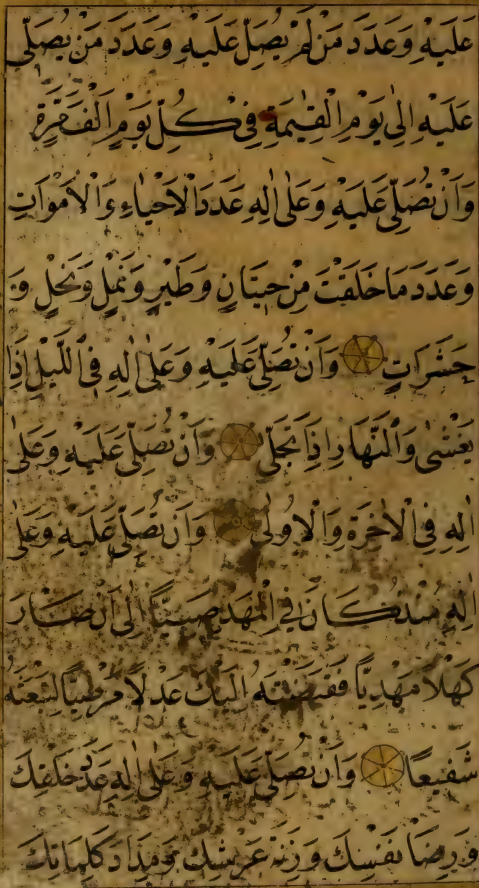 عَلَيْهِ وَعَدَدَ مَنْ لَمْ يُصَلِّ عَلَيْهِ وَعَدَدَ مَنْ يُصَلِّي
عَلَيْهِ اِلٰى يَوْمِ الْقِيٰمَةِ فِي كُلِّ يَوْمٍ اَلْفَ مَرَّةٍ
وَاَنْ تُصَلِّيَ عَلَيْهِ وَعَلٰى اٰلِهِ عَدَدَ الْاَحْيَاءِ وَالْاَمْوَاتِ
وَعَدَدَ مَا خَلَقْتَ مِنْ حِيتَانٍ وَطَيْرٍ وَنَمْلٍ وَنَحْلٍ وَ
حَشَرَاتٍ وَاَنْ تُصَلِّيَ عَلَيْهِ وَعَلٰى اٰلِهِ فِي اللَّيْلِ اِذَا
يَغْشٰى وَالنَّهَارِ اِذَا تَجَلّٰى وَاَنْ تُصَلِّيَ عَلَيْهِ وَعَلٰى
اٰلِهِ فِي الْاٰخِرَةِ وَالْاُولٰى وَاَنْ تُصَلِّيَ عَلَيْهِ وَعَلٰى
اٰلِهِ مُنْذُ كَانَ فِي الْمَهْدِ صَبِيًّا اِلٰى اَنْ صَارَ
كَهْلًا مَهْدِيًّا فَقَبَضْتَهُ اِلَيْكَ عَدْلًا مَرْضِيًّا لِتَبْعَثَهُ
شَفِيعًا وَاَنْ تُصَلِّيَ عَلَيْهِ وَعَلٰى اٰلِهِ عَدَدَ خَلْقِكَ
وَرِضَا نَفْسِكَ وَزِنَةَ عَرْشِكَ وَمِدَادَ كَلِمَاتِكَ